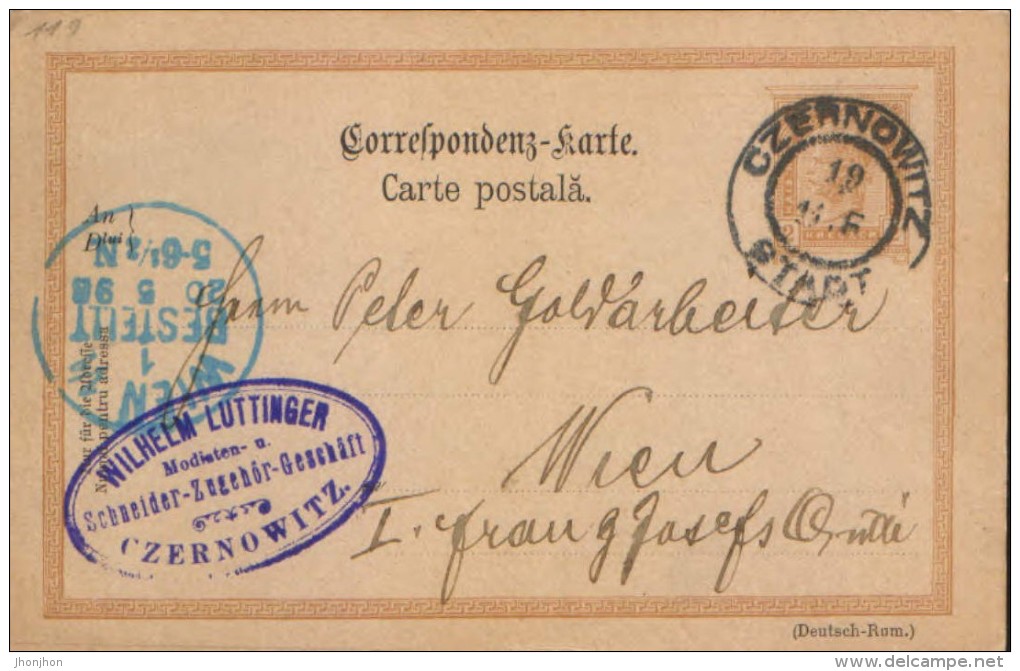 119
Correſpondenz-Karte.
Carte postală.
An
Dlui
CZERNOWITZ
STADT
19
Herrn Peter Goldarbeiter
Wien
I. Franz Josefs Quai
WIEN
1
BESTELLT
20 5 98
5-6½N
Nur für die Adresse
Numai pentru adressă
WILHELM LUTTINGER
Modisten- u.
Schneider-Zugehör-Geschäft
CZERNOWITZ.
(Deutsch-Rum.)
jhonjhon
delcampe.net